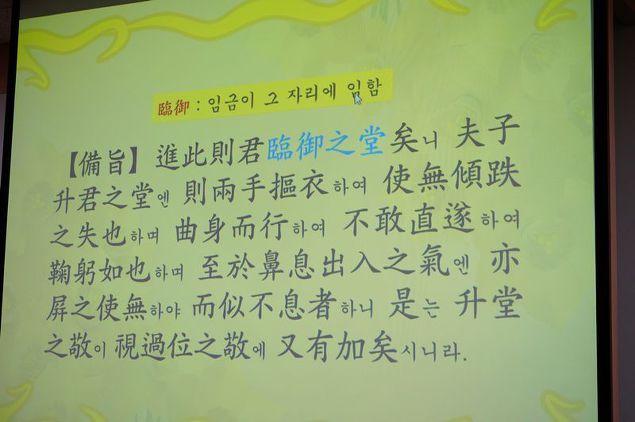 臨御 : 임금이 그 자리에 임함
【備旨】進此則君臨御之堂矣니 夫子
升君之堂엔 則兩手摳衣하여 使無傾跌
之失也하며 曲身而行하여 不敢直遂하여
鞠躬如也하며 至於鼻息出入之氣엔 亦
屛之使無하야 而似不息者하니 是는 升堂
之敬이 視過位之敬에 又有加矣시니라.